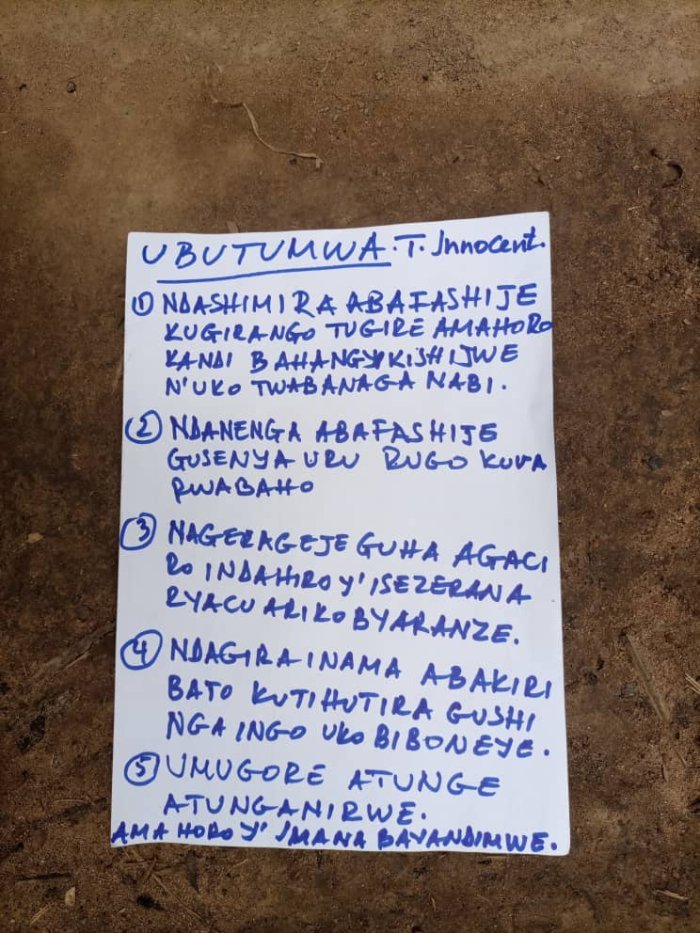 UBUTUMWA. T. Innocent.
1) NDASHIMIRA ABAFASHIJE
KUGIRANGO TUGIRE AMAHORO
KANDI BAHANGYIKISHIJWE
N'UKO TWABANAGA NABI.
2 NDANENGA ABAFASHIJE
GUSENYA URU RUGO KUVA
RWABAHO
3 NAGERAGEJE GUHA AGACI
RO INDAHIRO Y'ISEZERANA
RYACU ARIKO BYARANZE.
4 NDAGIRA INAMA ABAKIRI
BATO KUTIHUTIRA GUSHI
NGA INGO UKO BIBONEYE.
5 UMUGORE ATUNGE
ATUNGANIRWE.
AMAHORO Y' IMANA BAVANDIMWE.